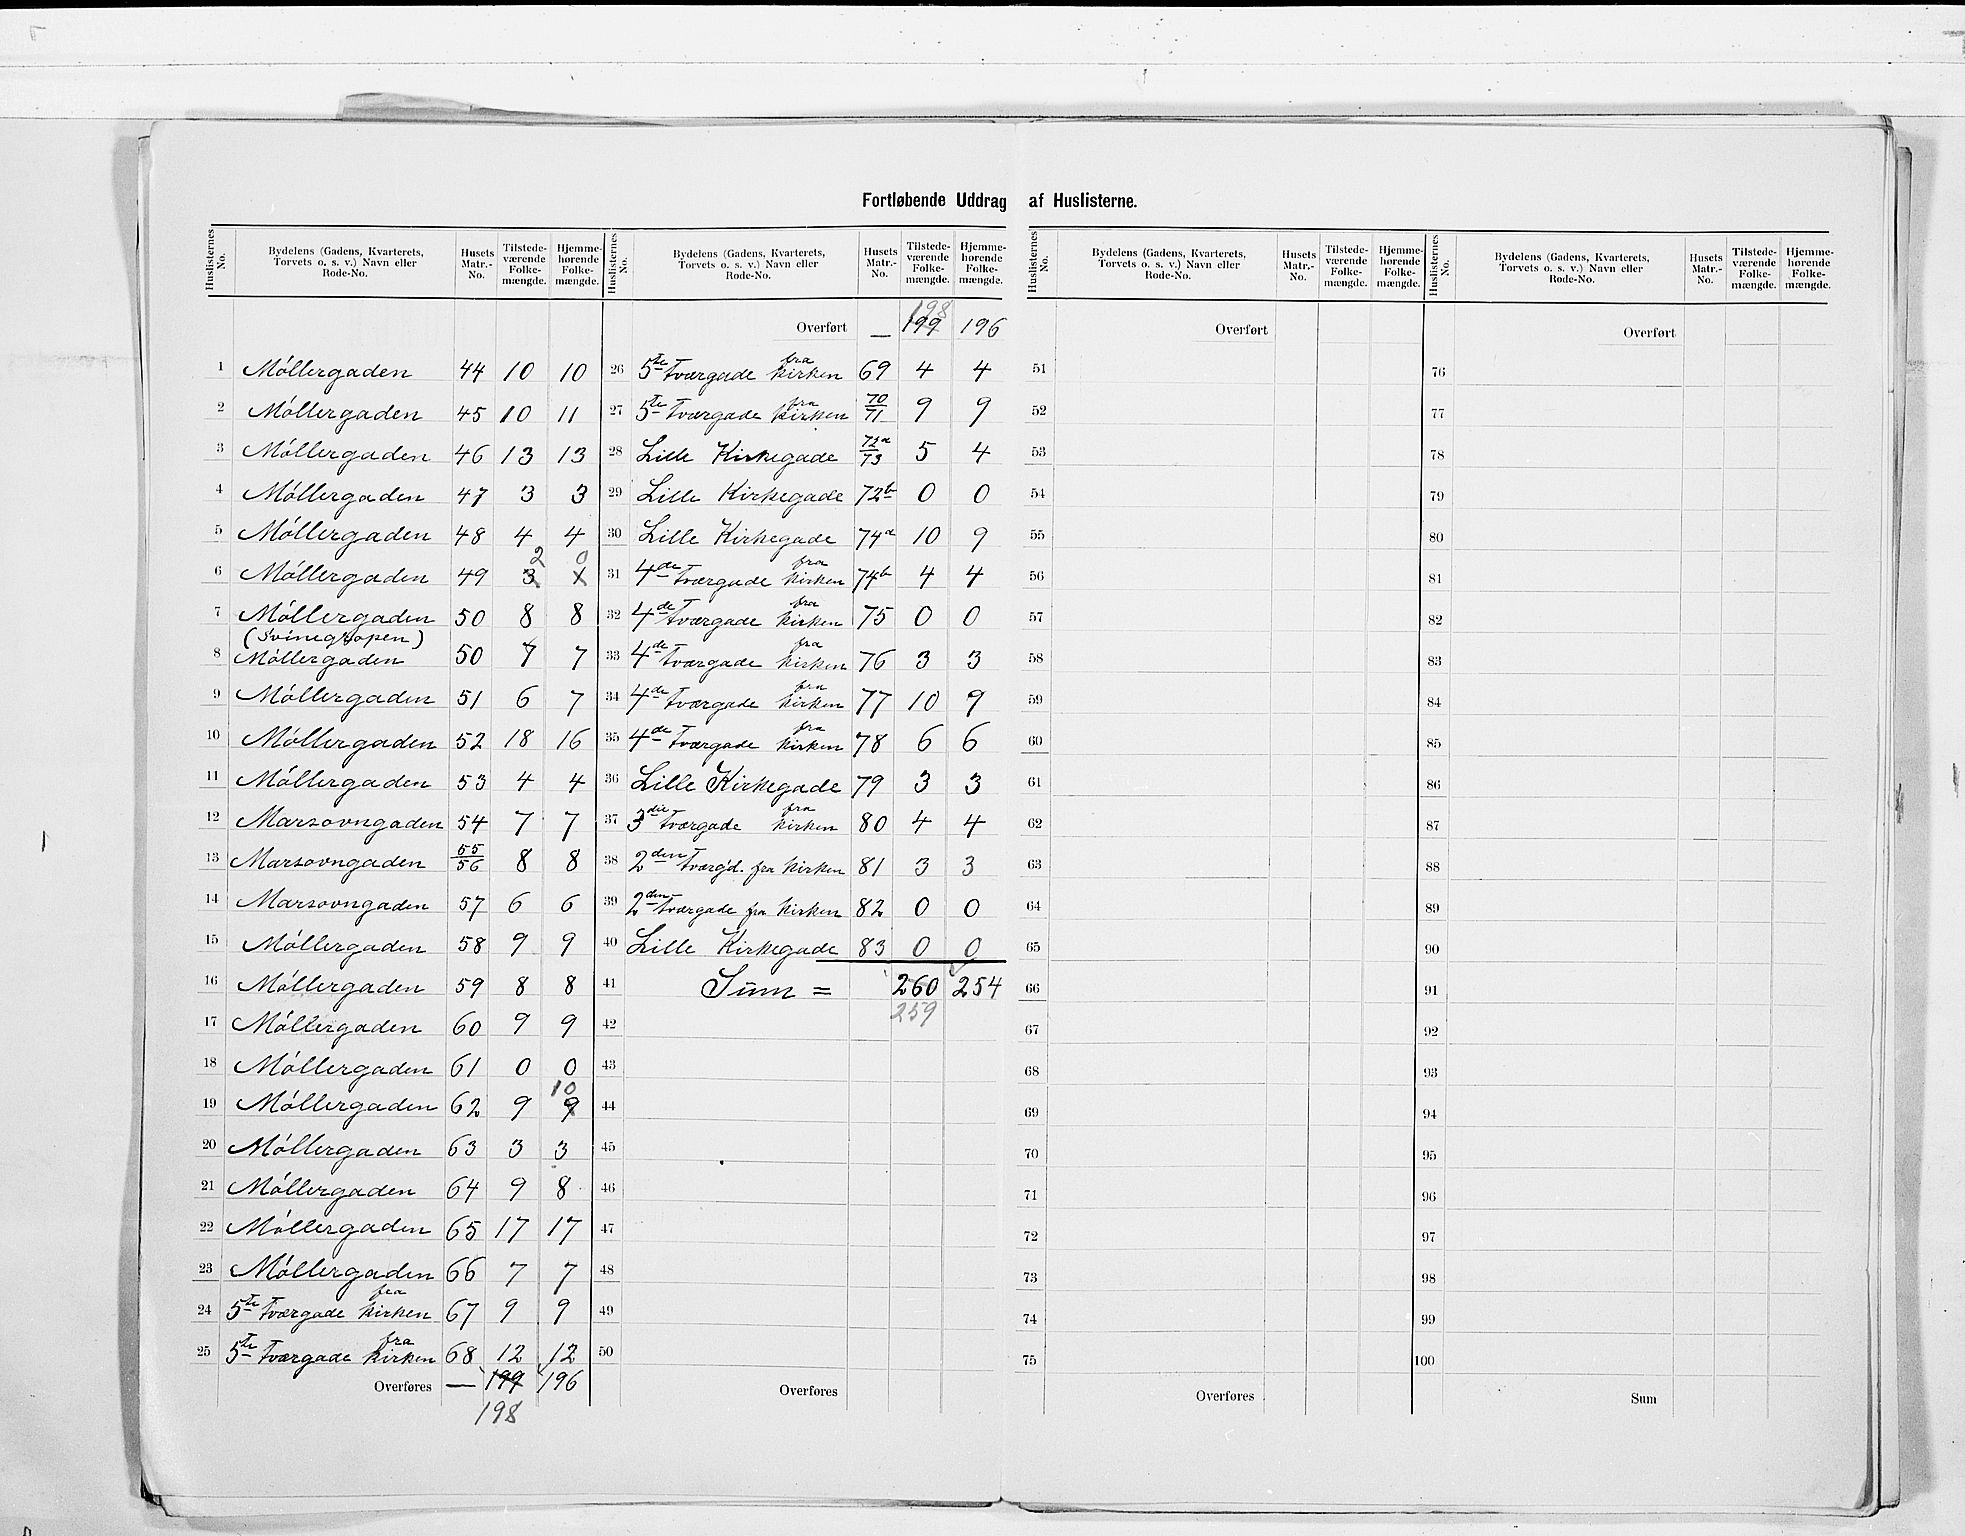 Fortløbende Uddrag af Huslisterne.
Huslisternes No. | Bydelens (Gadens, Kvarterets, Torvets o. s. v.) Navn eller Rode-No. | Husets Matr.-No. | Tilstedeværende Folkemængde. | Hjemmehørende Folkemængde.
1 Møllergaden 44 10 10
2 Møllergaden 45 10 11
3 Møllergaden 46 13 13
4 Møllergaden 47 3 3
5 Møllergaden 48 4 4
2 0
6 Møllergaden 49 3 1
7 Møllergaden 50 8 8
(Svinegropen)
8 Møllergaden 50 7 7
9 Møllergaden 51 6 7
10 Møllergaden 52 18 16
11 Møllergaden 53 4 4
12 Marsovngaden 54 7 7
13 Marsovngaden 55/56 8 8
14 Marsovngaden 57 6 6
15 Møllergaden 58 9 9
16 Møllergaden 59 8 8
17 Møllergaden 60 9 9
18 Møllergaden 61 0 0
10
19 Møllergaden 62 9 9
20 Møllergaden 63 3 3
21 Møllergaden 64 9 8
22 Møllergaden 65 17 17
23 Møllergaden 66 7 7
24 5te Tværgade fra Kirken 67 9 9
25 5te Tværgade fra Kirken 68 12 12
Overføres — 199 196
198
Huslisternes No. | Bydelens (Gadens, Kvarterets, Torvets o. s. v.) Navn eller Rode-No. | Husets Matr.-No. | Tilstedeværende Folkemængde. | Hjemmehørende Folkemængde.
198
Overført — 199 196
26 5te Tværgade fra Kirken 69 4 4
27 5te Tværgade fra Kirken 70/71 9 9
28 Lille Kirkegade 72a/73 5 4
29 Lille Kirkegade 72b 0 0
30 Lille Kirkegade 74a 10 9
31 4de Tværgade fra Kirken 74b 4 4
32 4de Tværgade fra Kirken 75 0 0
33 4de Tværgade fra Kirken 76 3 3
34 4de Tværgade fra Kirken 77 10 9
35 4de Tværgade fra Kirken 78 6 6
36 Lille Kirkegade 79 3 3
37 3die Tværgade fra Kirken 80 4 4
38 2den Tværgd. fra Kirken 81 3 3
39 2den Tværgade fra Kirken 82 0 0
40 Lille Kirkegade 83 0 0
41 Sum = 260 254
259
42
43
44
45
46
47
48
49
50
Overføres
Huslisternes No. | Bydelens (Gadens, Kvarterets, Torvets o. s. v.) Navn eller Rode-No. | Husets Matr.-No. | Tilstedeværende Folkemængde. | Hjemmehørende Folkemængde.
Overført
51
52
53
54
55
56
57
58
59
60
61
62
63
64
65
66
67
68
69
70
71
72
73
74
75
Overføres
Huslisternes No. | Bydelens (Gadens, Kvarterets, Torvets o. s. v.) Navn eller Rode-No. | Husets Matr.-No. | Tilstedeværende Folkemængde. | Hjemmehørende Folkemængde.
Overført
76
77
78
79
80
81
82
83
84
85
86
87
88
89
90
91
92
93
94
95
96
97
98
99
100
Sum